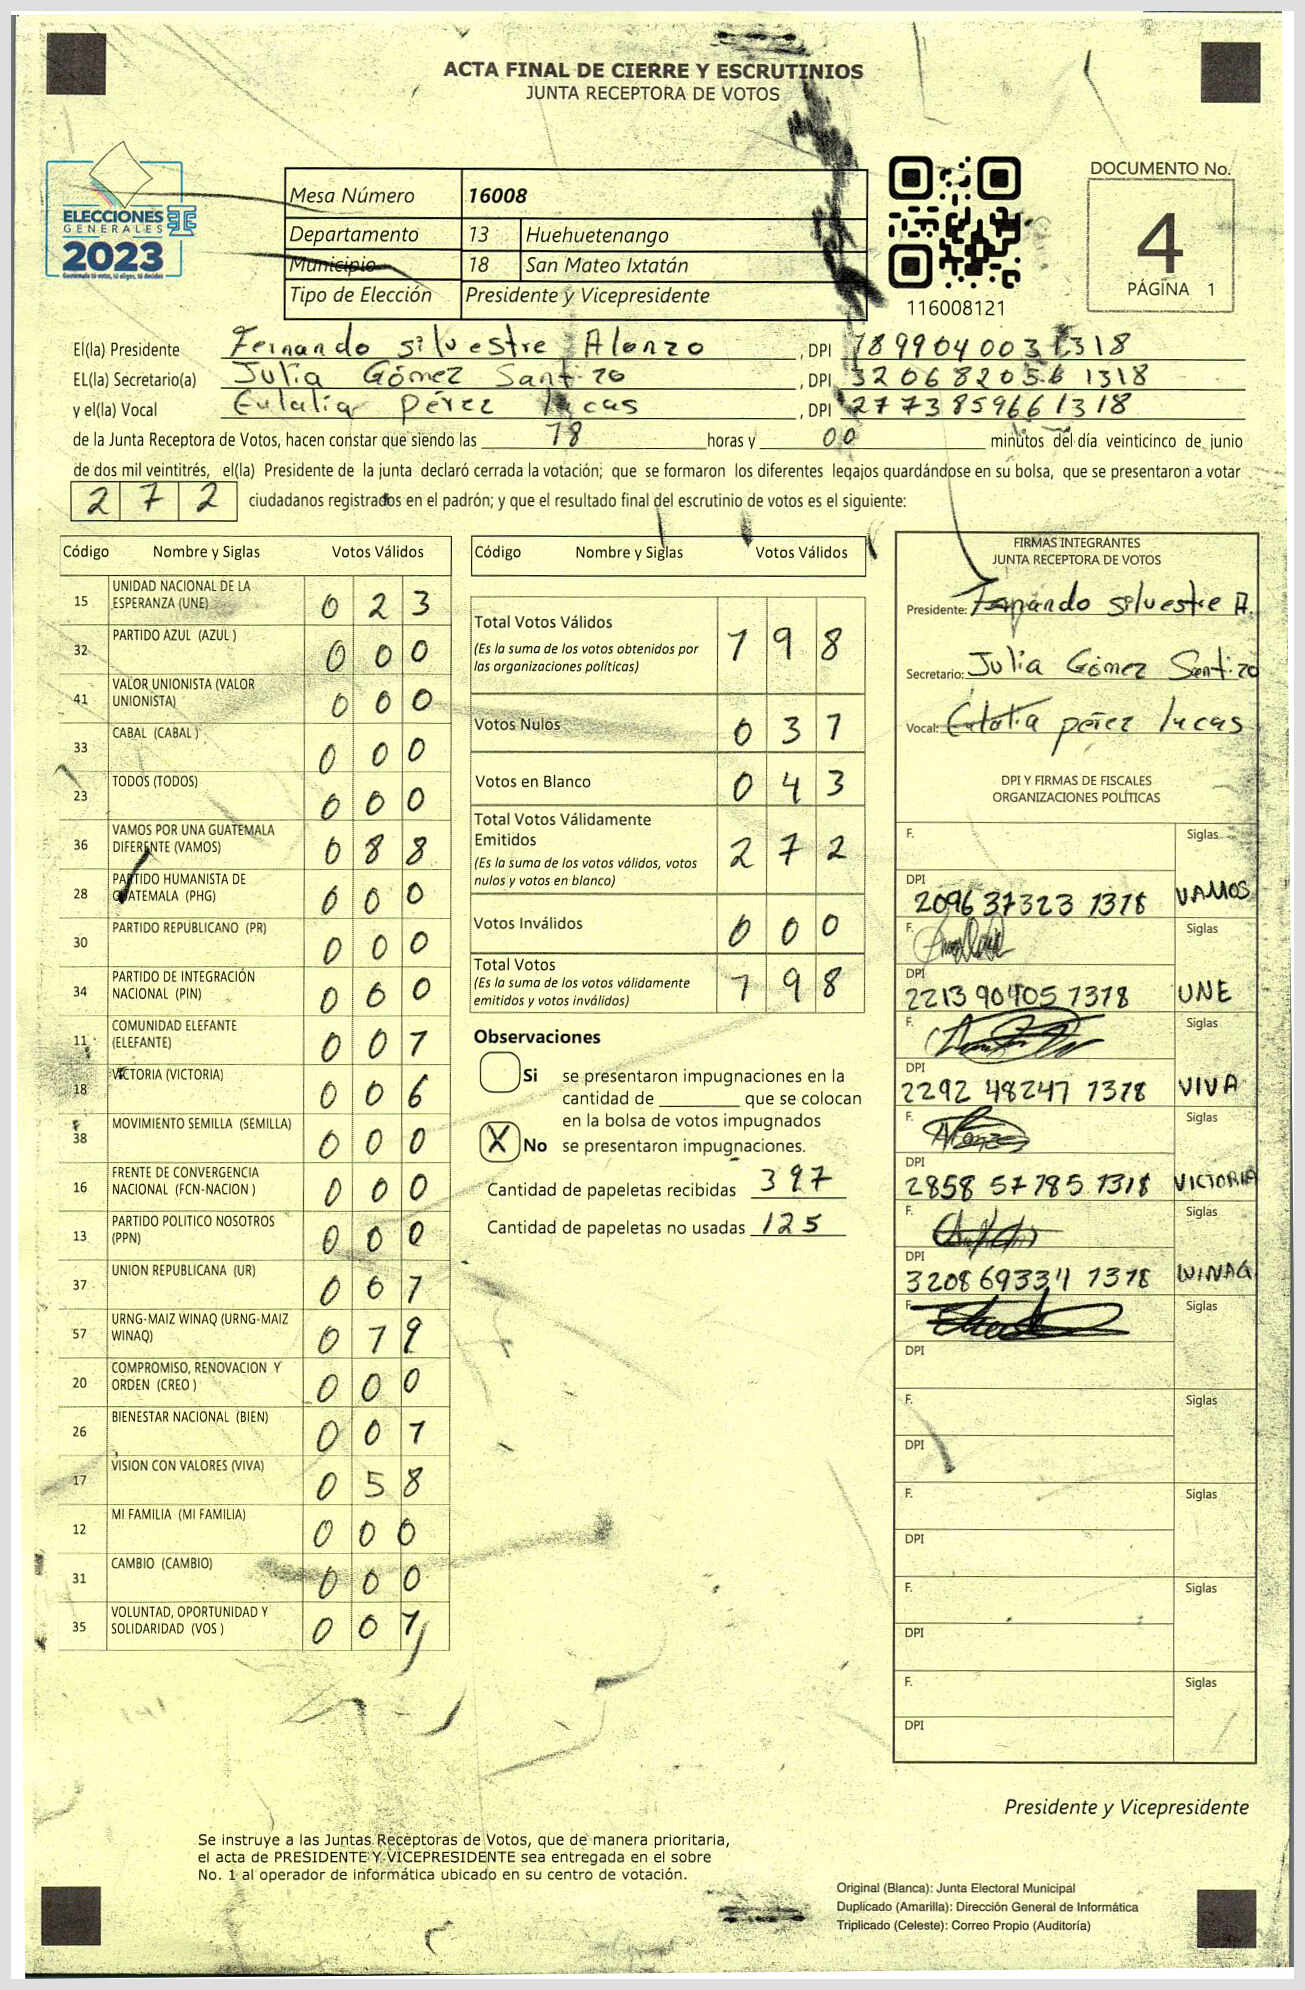 ACTA FINAL DE CIERRE Y ESCRUTINIOS
JUNTA RECEPTORA DE VOTOS
ELECCIONES
GENERALES
2023
Mesa Número 16008
Departamento 13 Huehuetenango
Municipio 18 San Mateo Ixtatán
Tipo de Elección Presidente y Vicepresidente
116008121
DOCUMENTO No.
4
PÁGINA 1
El(la) Presidente Fernando silvestre Alonzo, DPI
EL(la) Secretario(a) Julia Gómez Santizo, DPI 320682056 1318
y el(la) Vocal Eulalia pérez lucas, DPI 277385966 1318
de la Junta Receptora de Votos, hacen constar que siendo las 18 horas y 00 minutos del día veinticinco de junio
de dos mil veintitrés, el(la) Presidente de la junta declaró cerrada la votación; que se formaron los diferentes legajos guardándose en su bolsa, que se presentaron a votar
272 ciudadanos registrados en el padrón; y que el resultado final del escrutinio de votos es el siguiente:
Código Nombre y Siglas Votos Válidos
15 UNIDAD NACIONAL DE LA ESPERANZA (UNE) 0 2 3
32 PARTIDO AZUL (AZUL ) 0 0 0
41 VALOR UNIONISTA (VALOR UNIONISTA) 0 0 0
33 CABAL (CABAL ) 0 0 0
23 TODOS (TODOS) 0 0 0
36 VAMOS POR UNA GUATEMALA DIFERENTE (VAMOS) 0 8 8
28 PARTIDO HUMANISTA DE GUATEMALA (PHG) 0 0 0
30 PARTIDO REPUBLICANO (PR) 0 0 0
34 PARTIDO DE INTEGRACIÓN NACIONAL (PIN) 0 0 0
11 COMUNIDAD ELEFANTE (ELEFANTE) 0 0 1
18 VICTORIA (VICTORIA) 0 0 6
38 MOVIMIENTO SEMILLA (SEMILLA) 0 0 0
16 FRENTE DE CONVERGENCIA NACIONAL (FCN-NACION ) 0 0 0
13 PARTIDO POLITICO NOSOTROS (PPN) 0 0 0
37 UNION REPUBLICANA (UR) 0 0 1
57 URNG-MAIZ WINAQ (URNG-MAIZ WINAQ) 0 1 9
20 COMPROMISO, RENOVACION Y ORDEN (CREO ) 0 0 0
26 BIENESTAR NACIONAL (BIEN) 0 0 1
17 VISION CON VALORES (VIVA) 0 5 8
12 MI FAMILIA (MI FAMILIA) 0 0 0
31 CAMBIO (CAMBIO) 0 0 0
35 VOLUNTAD, OPORTUNIDAD Y SOLIDARIDAD (VOS ) 0 0 1
Código Nombre y Siglas Votos Válidos
Total Votos Válidos 1 9 8
(Es la suma de los votos obtenidos por
las organizaciones políticas)
Votos Nulos 0 3 1
Votos en Blanco 0 4 3
Total Votos Válidamente
Emitidos 2 7 2
(Es la suma de los votos válidos, votos
nulos y votos en blanco)
Votos Inválidos 0 0 0
Total Votos 1 9 8
(Es la suma de los votos válidamente
emitidos y votos inválidos)
Observaciones
Si se presentaron impugnaciones en la
cantidad de ________ que se colocan
en la bolsa de votos impugnados
X No se presentaron impugnaciones.
Cantidad de papeletas recibidas 397
Cantidad de papeletas no usadas 125
FIRMAS INTEGRANTES
JUNTA RECEPTORA DE VOTOS
Presidente: Fernando silvestre A.
Secretario: Julia Gómez Santizo
Vocal: Eulalia pérez lucas
DPI Y FIRMAS DE FISCALES
ORGANIZACIONES POLÍTICAS
F. Siglas
DPI 2096 37323 1318 VAMOS
F. Siglas
DPI 2213 90405 1318 UNE
F. Siglas
DPI 2292 48247 1318 VIVA
F. Siglas
DPI 2858 57785 1318 VICTORIA
F. Siglas
DPI 3208 69334 1318 WINAQ
F. Siglas
DPI
F. Siglas
DPI
F. Siglas
DPI
F. Siglas
DPI
F. Siglas
DPI
Presidente y Vicepresidente
Se instruye a las Juntas Receptoras de Votos, que de manera prioritaria,
el acta de PRESIDENTE Y VICEPRESIDENTE sea entregada en el sobre
No. 1 al operador de informática ubicado en su centro de votación.
Original (Blanca): Junta Electoral Municipal
Duplicado (Amarilla): Dirección General de Informática
Triplicado (Celeste): Correo Propio (Auditoría)